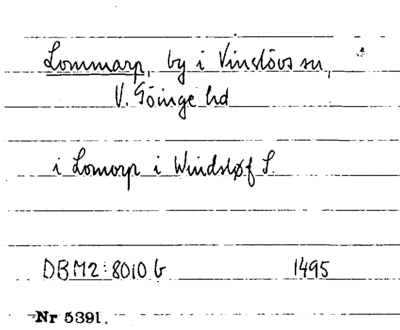 Lommarp, by i Vinslövs sn,
V. Göinge hd
i Lomorp i Windsløf S.
DBM2:8010 b 1495
Nr 5391.